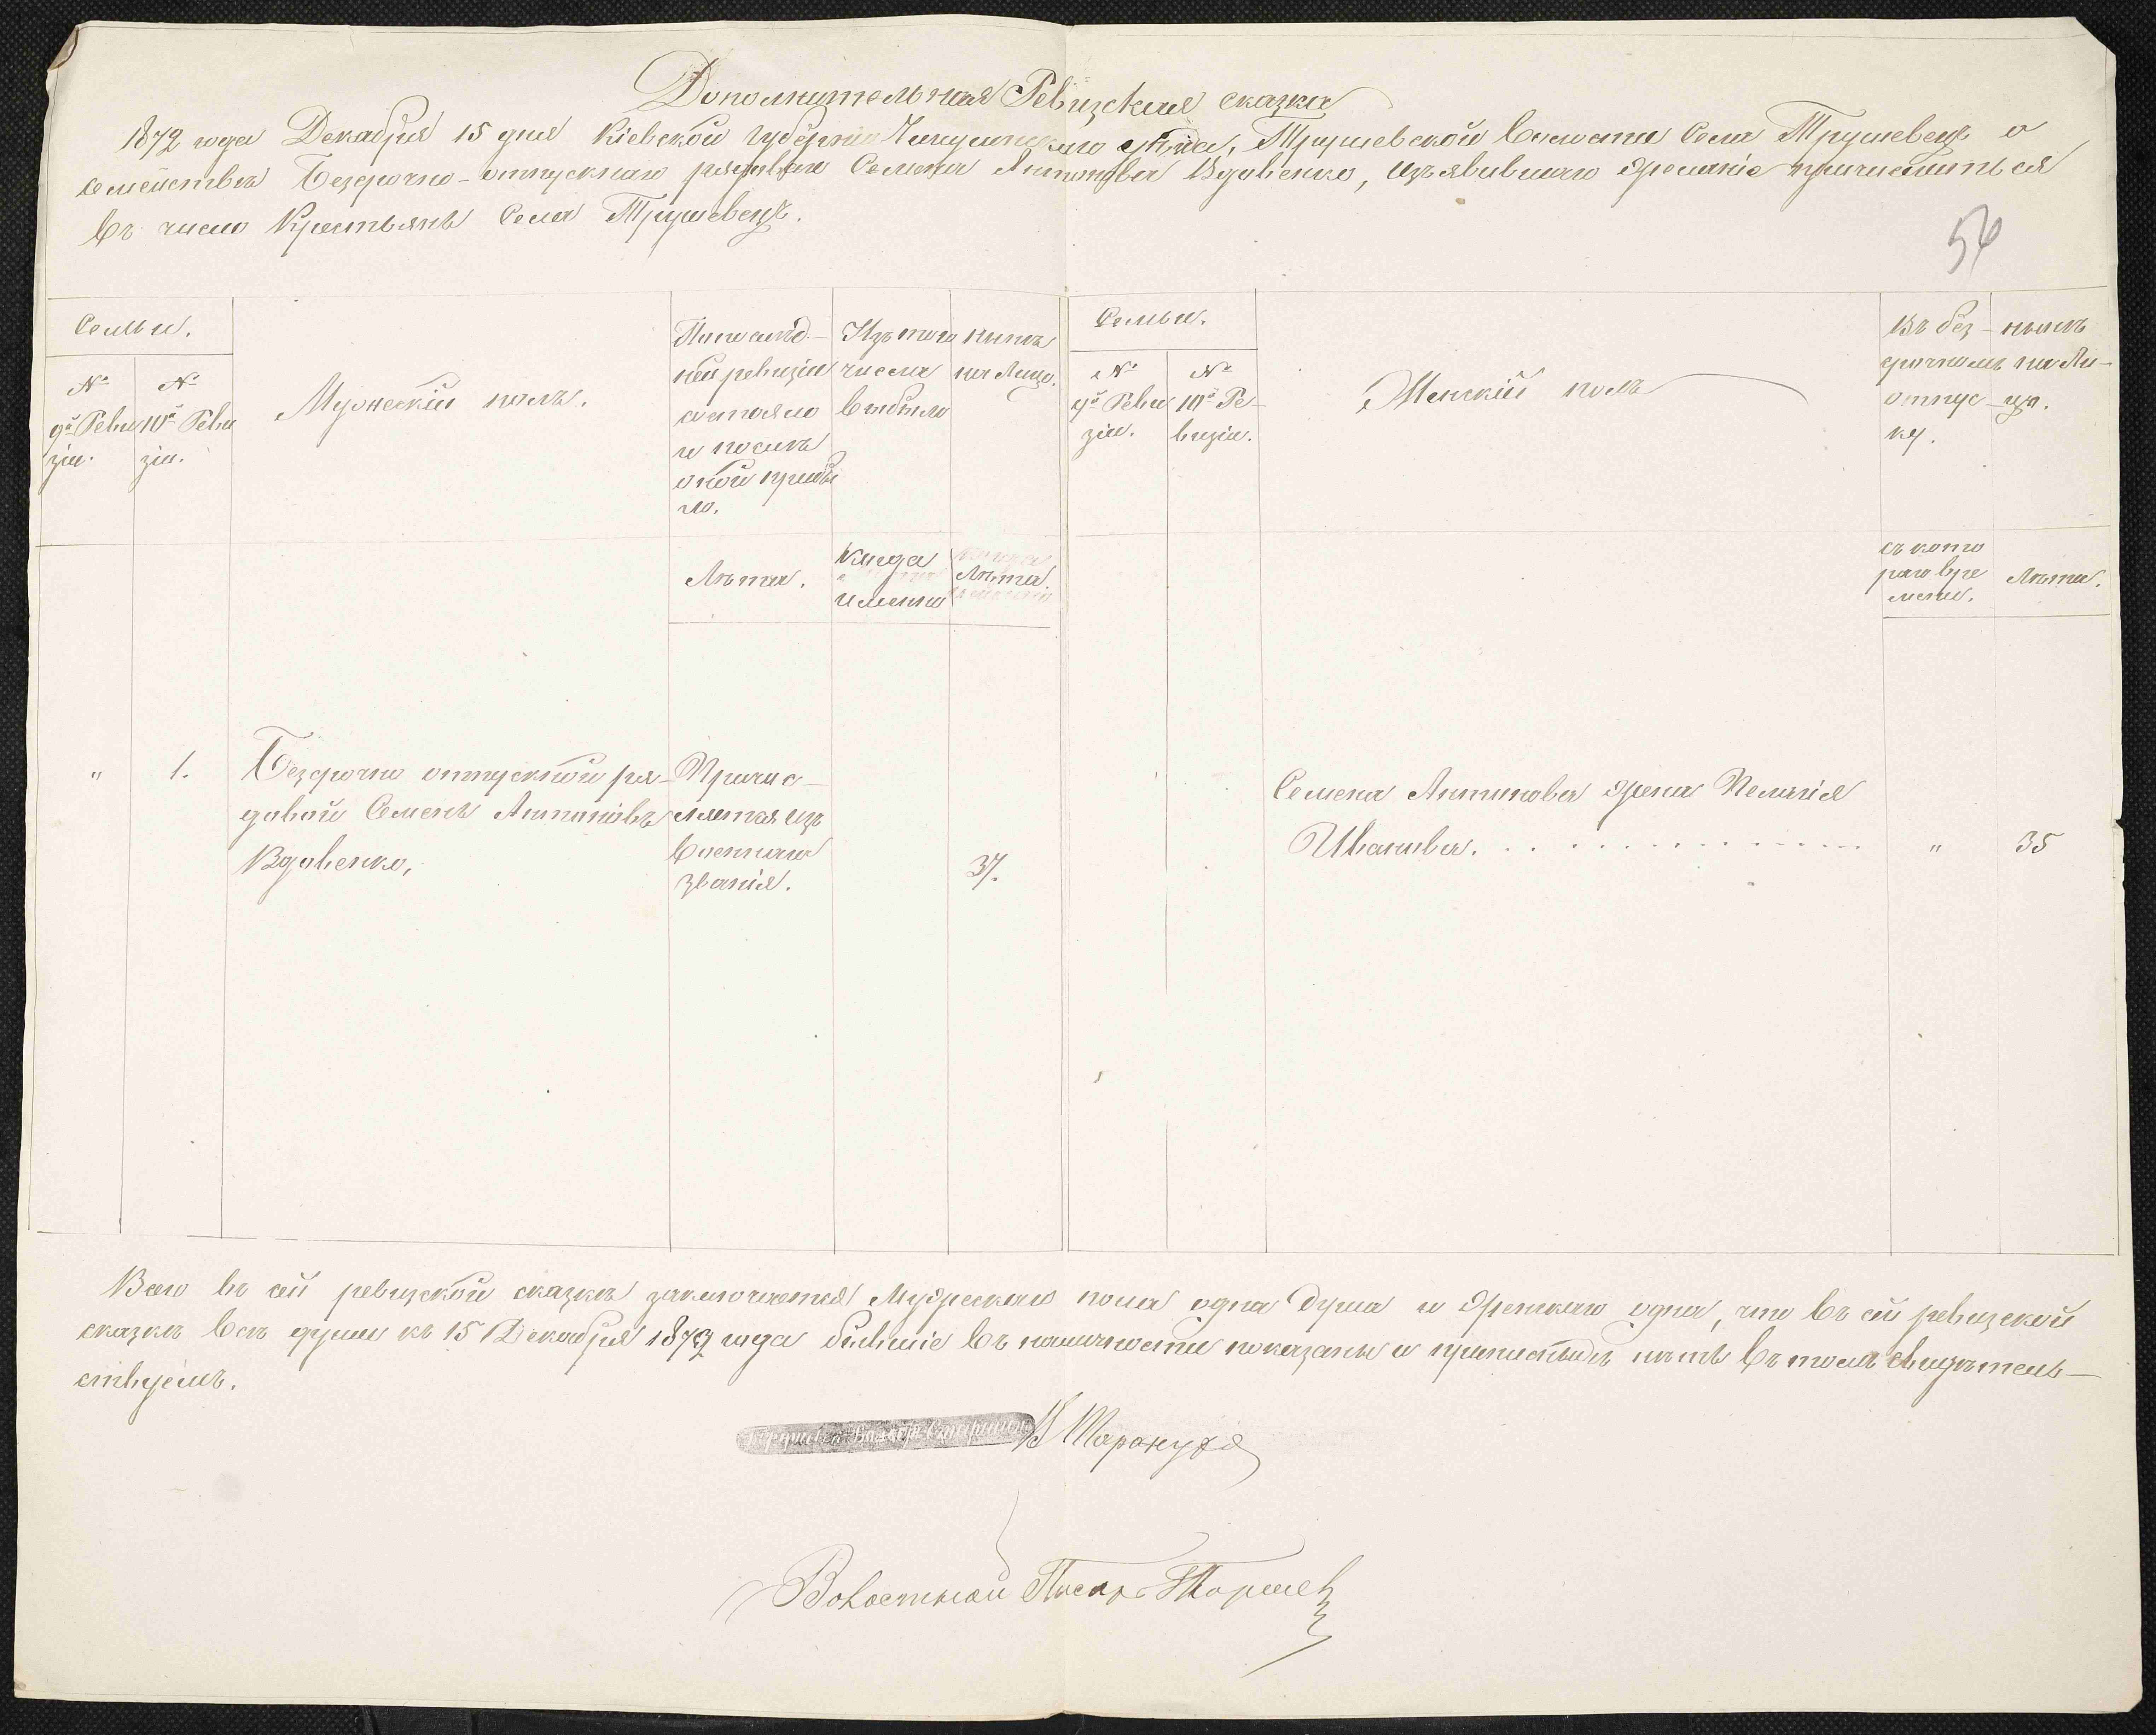 Дополнительная Ревизская сказка
1872 года Декабря 15 дня Кіевской губерніи Чигиринскаго уѣзда, Трушевской Волости Села Трушевецъ о
семействѣ Безсрочно-отпускнаго рядоваго Семена Антонова Вдовенко, изъявившаго желаніе причислиться
въ число Крестьянъ Села Трушевецъ.
56
Семьи.
№
9й Реви
зіи.
№
10й Реви
зіи.
Мужескій полъ.
По послѣд-
ней ревизіи
состояло
и послѣ
оной прибы
ло.
Изъ того
числа
выбыло
нынѣ
на Лицо.
Семьи.
№
9й Реви
зіи.
№
10й Ре-
визіи.
Женскій полъ
Въ без-
срочномъ
отпус-
ку.
нынѣ
на Ли-
цо.
Лѣта.
Когда
именно
Лѣта.
съ кото
раго вре
мени.
Лѣта.
"
1.
Безсрочно отпускной ря-
довой Семенъ Антоновъ
Вдовенко,
Причис-
ляется изъ
Военнаго
званія.
37.
Семена Антонова жена Пелагія
Иванова. . . . . . . . . . . . . . .
"
35
Всего въ сей ревизской сказкѣ заключается Мужескаго пола одна душа и Женскаго одна, что въ сей ревизской
сказкѣ всѣ души къ 15 Декабря 1872 года бывшіе въ наличности показаны и прописныхъ нѣтъ въ томъ свидѣтель-
ствуемъ.
Волостной Писарь